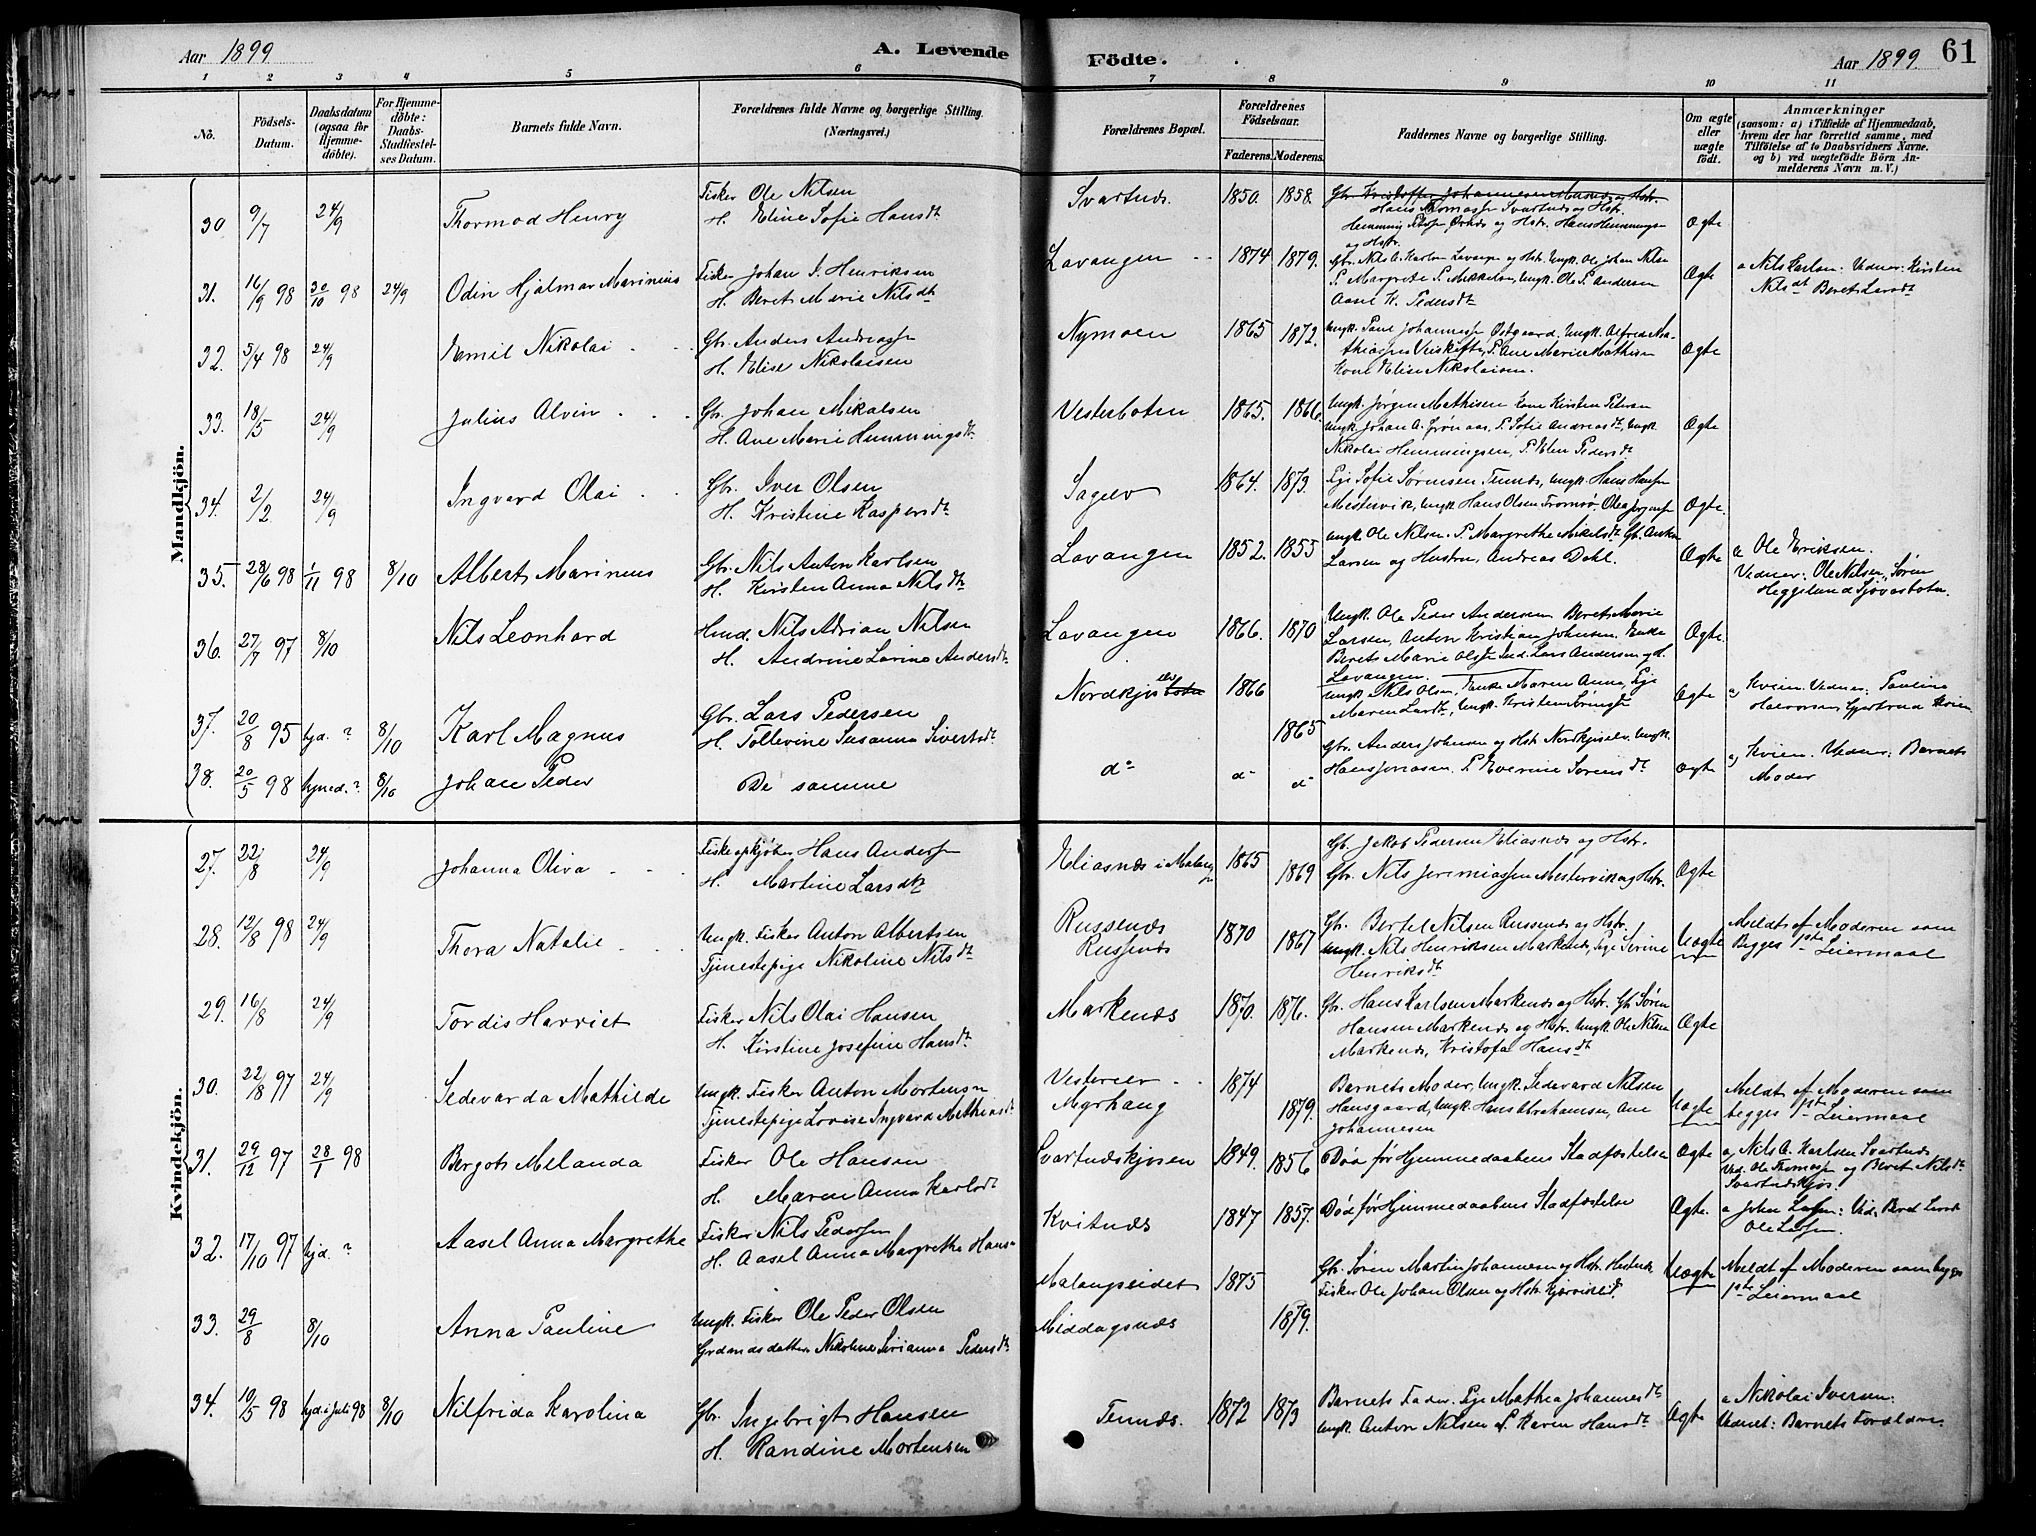 Aar 1899
A. Levende
Födte.
Aar 1899.
61
1 2 3 4 5 6 7 8 9 10 11
No.
Födsels-
Datum.
Daabsdatum
(ogsaa for
Hjemme-
döbte).
For Hjemme-
döbte:
Daabs-
Stadfæstel-
ses Datum.
Barnets fulde Navn.
Forældrenes fulde Navne og borgerlige Stilling.
(Næringsvei.)
Forældrenes Bopæl.
Forældrenes
Födselsaar.
Faderens. Moderens.
Faddernes Navne og borgerlige Stilling.
Om ægte
eller
uægte
födt.
Anmærkninger
(saasom: a) i Tilfælde af Hjemmedaab,
hvem der har forrettet samme, med
Tilföielse af to Daabsvidners Navne.
og b) ved uægtefödte Börn An-
melderens Navn m. V.)
Mandkjön.
30 9/7 24/9 Thormod Henry
Fisker Ole Nilsen
H. Eline Sofie Hansdt
Svartnæs. 1850. 1858.
Hans Thomassen Svartnæs og Hstr.
og Hstr. Hans Hemmingsen
og Hstr.
Ægte
31. 16/9 98 30/10 98 24/9 Odin Hjalmar Marinius
Fisker Johan J. Henriksen
H. Beret Marie Nilsdt
Lavangen 1874 1879.
Gbr. Nils A. Karlsen Lavangen og Hstr. Ungk. Ole Johan Nilsen
P. Margrede P. Mikkelsen, Ungk. Ole P. Andersen
Aasel K. Pedersdt
Ægte
a Nils Karlsen: Vidner: Kirsten
Nilsdt Beret Larsdt
32. 5/4 98 24/9 Emil Nikolai
Gbr. Anders Andreassen
H. Elise Nikolaisen
Nymoen 1865 1872.
Ungk. Paul Johannessen Østgaard, Ungk. Alfred Ma-
P. Ane Marie Mathisen
Kone Elise Nikolaisen.
Ægte
33. 18/5 24/9 Julius Alvin
Gbr. Johan Mikalsen
H. Ane Marie Hemmingsdt.
Vesterbotn 1865. 1866.
Ungk. Jørgen Mathisen Kone Kirsten
Ungk. Johan A. Grønaas, P. Sofie Andreasdt, Ungk.
Nikolai Hemmingsen, P. Elen Pedersdt.
Ægte
34. 2/2 24/9 Ingvard Olai
Gbr. Iver Olsen
H. Kristine Kaspersdt
Sagelv 1864. 1873.
Pige Sofie Sørensen Tennæs, Ungk. Hans Hansen
Mestervik, Ungk. Hans Olsen Tromsø,
Ægte.
35. 28/6 98 1/11 98 8/10 Albert Marinius
Gbr. Nils Anton Karlsen
H. Kirsten Anna Nilsdt.
Lavangen 1852. 1855
Ungk. Ole Nilsen. P. Margrethe Mikelsdt. Gb. Anton
Larsen og Hustru, Andreas Dahl.
Ægte
a Ole Eriksen.
Vidner: Ole Nilsen, Søren
Heggelund Sjøvasbotn.
36. 27/7 97 8/10 Nils Leonhard
Hmd. Nils Adrian Nilsen
H. Andrine Lovine Andersdt.
Lavangen 1866. 1870
Ungk. Ole Peder Andersen Beret Marie
Larsen, Anton Kristian Johnsen. Enke
Berets Marie Olsdt Ind. Lars Andersen og H.
Lavangen.
Ægte
37. 20/8 95 hjd. ? 8/10 Karl Magnus
Gbr. Lars Pedersen
H. Tollevine Susanna Sivertsdt.
Nordkjos elv 1866 1865
Ungk. Nils Olsen, Enke Maren Anna, Pige
Maren Larsdt, Ungk. Kristen
Ægte
a, Kvien. Vidner: Pauline
Halvorsen, Gjertrud Kvien
38. 20/5 98 hjmed. ? 8/10 Johan Peder
De samme
do do do
Gbr. Anders Johnsen og Hstr. Nordkjoselv. Ungk.
Hans Jonasen. P. Everine Sørensdt.
Ægte
a, Kvien. Vidner: Barnets
Moder
Kvindekjön.
27. 22/8 24/9 Johanna Oliva
Fiskeopkjøber Hans Andersen
H. Martine Larsdt
Eliasnæs i Malangen 1865 1869
Gb. Jakob Pedersen Eliasnæs og Hstr.
Gbr. Nils Jeremiassen Mestervik og Hstr.
Ægte
28. 12/8 98 24/9 Thora Natalie
Ungk. Fisker Anton Albertsen
Tjenestepige Nikoline Nilsdt
Russenæs
Russenæs
1870 1867
Gbr. Bertel Nilsen Russenæs og Hstr.
Ungk. Nils Henriksen Markenæs, Pige Serine
Henriksdt
Uægte
Meldt af Moderen som
Begges 1ste Leiermaal
29. 16/8 24/9 Tordis Harriet
Fisker Nils Olai Hansen
H. Kirstine Josefine Hansdt
Markenæs 1870. 1876.
Gbr. Hans Karlsen Markenæs og Hstr. Gb. Søren
Hansen Markenæs og Hstr. Ungk. Ole Nilsen
Markenæs, Kristofa Hansdt
Ægte
30. 22/8 97 24/9 Sedevarda Mathilde
Ungk. Fisker Anton Mortensen
Tjenestepige Lovise Ingvarda Mathiasdt
Vesterelv
Myrhaug
1874 1879.
Barnets Moder, Ungk. Sedevard Nilsen
Hansgaard, Ungk. Hans Abrahamsen, Ane
Johannesen
Uægte
Meldt af Moderen som
begges 1ste Leiermaal
31. 29/12 97 28/1 98 Bergots Melanda
Fisker Ole Hansen
H. Maren Anna Karlsdt
Svartnæskjosen 1849. 1856
Død før Hjemmedaabens Stadfæstelse
Ægte
a, Nils A. Karlsen Svartnæs
Vid. Ole Thomassen og Beret Nilsdt
Svartnæskjos.
32. 17/10 97 hjd. ? Aasel Anna Margrethe
Fisker Nils Pedersen
H. Aasel Anna Margrethe Hansen
Kvitnæs 1847 1857.
Død før Hjemmedaabens Stadfæstelse
Ægte.
a Johan Larsen: Vid. Beret Larsdt
Ole Larsen.
33. 29/8 8/10 Anna Pauline
Ungk. Fisker Ole Peder Olsen
Grdmdsdatter Nikoline Sirianna Pedersdt.
Malangseidet
Middagsnæs
1875 1879.
Gbr. Søren Martin Johannesen og Hstr.
Fisker Ole Johan Olsen og Hstr.
Uægte
Meldt af Moderen som begges
1ste Leiermaal
34. 10/5 98 hjd. i Juli 98 8/10 Nilfrida Karolina
Gbr. Ingebrigt Hansen
H. Randine Mortensen
Tennæs. 1872 1873
Barnets Fader, Pige Mathea Johannesdt
Ungk. Anton Nilsen P. Karen Hansdt
Ægte
a Nikolai Iversen.
Vidner: Barnets Forældre.